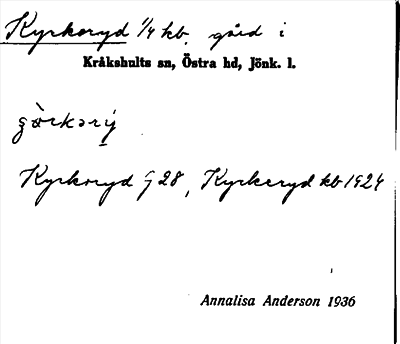 Kyrkeryd 1/4 kb. gård i
Kråkshults sn, Östra hd, Jönk. l.
Kyrkoryd J 28, Kyrkeryd kb 1924
Annalisa Anderson 1936